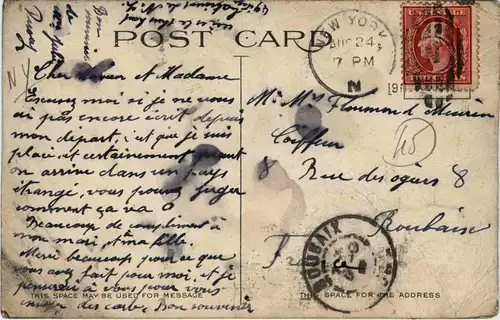 POST CARD
Cher Monsieur et Madame
Excusez moi si je ne vous
ai pas encore écrit depuis
mon départ, c'est que je suis
placé et certainement quand
on arrive dans un pays
étrangé, vous pouvez juger
comment ça va
Beaucoup de compliment à
mon mari et ma fille.
Merci beaucoup pour ce que
vous avez fait pour moi, et je
penserai à vous pour vous
envoyer des carte, Bon souvenir
THIS SPACE MAY BE USED FOR MESSAGE
Bon
souvenir
NY
NEW YORK
AUG 24
7 PM
N
TWO CENTS
Mr Me
Coiffeur
8 Rue des 8
Roubaix
ROUBAIX
THIS SPACE FOR THE ADDRESS